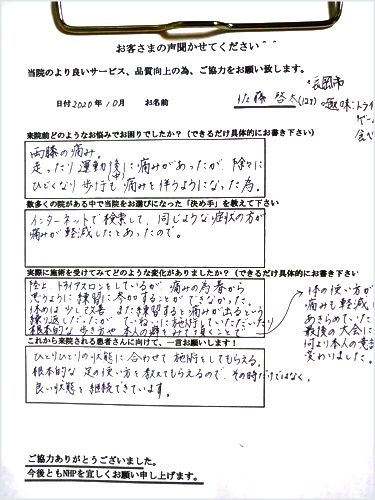 お客さまの声聞かせてください^^
当院のより良いサービス、品質向上の為、ご協力をお願い致します。
・長岡市
日付2020年10月 お名前 佐藤啓太(12才) 趣味:トライ
ゲー
食べ
来院前どのようなお悩みでお困りでしたか?(できるだけ具体的にお書き下さい)
両膝の痛み。
走ったり運動後に痛みがあったが、除々に
(中)
ひどくなり歩行も痛みを伴うようになった為。
数多くの院がある中で当院をお選びになった「決め手」を教えて下さい
インターネットで検索して、同じような症状の方が
痛みが軽減したとあったので。
実際に施術を受けてみてどのような変化がありましたか?(できるだけ具体的にお書き下さい)
陸上 トライアスロンをしているが 痛みの為春から
思うように練習に参加することができなかった。
休めば少しで改善 また練習すると痛みが出るという
繰り返しだったが ていねいに施術していただいたり
根本的な歩き方や 本人の癖をみて頂くことで
体の使い方が
痛みも軽減し
あきらめていた
最後の大会に
何より本人の意
変わりました。
これから来院される患者さんに向けて、一言お願いします!
ひとりひとりの状態に合わせて施術をしてもらえる。
根本的な 足の使い方を教えてもらえるので、その時だけではなく、
良い状態を継続できています。
ご協力ありがとうございました。
今後ともNHPを宜しくお願い申し上げます。